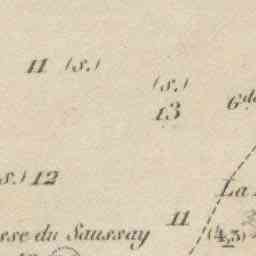 11 (s.)
(s.)
13
6 de
s.) 12
La
11
sse du Saussay
(4,3)